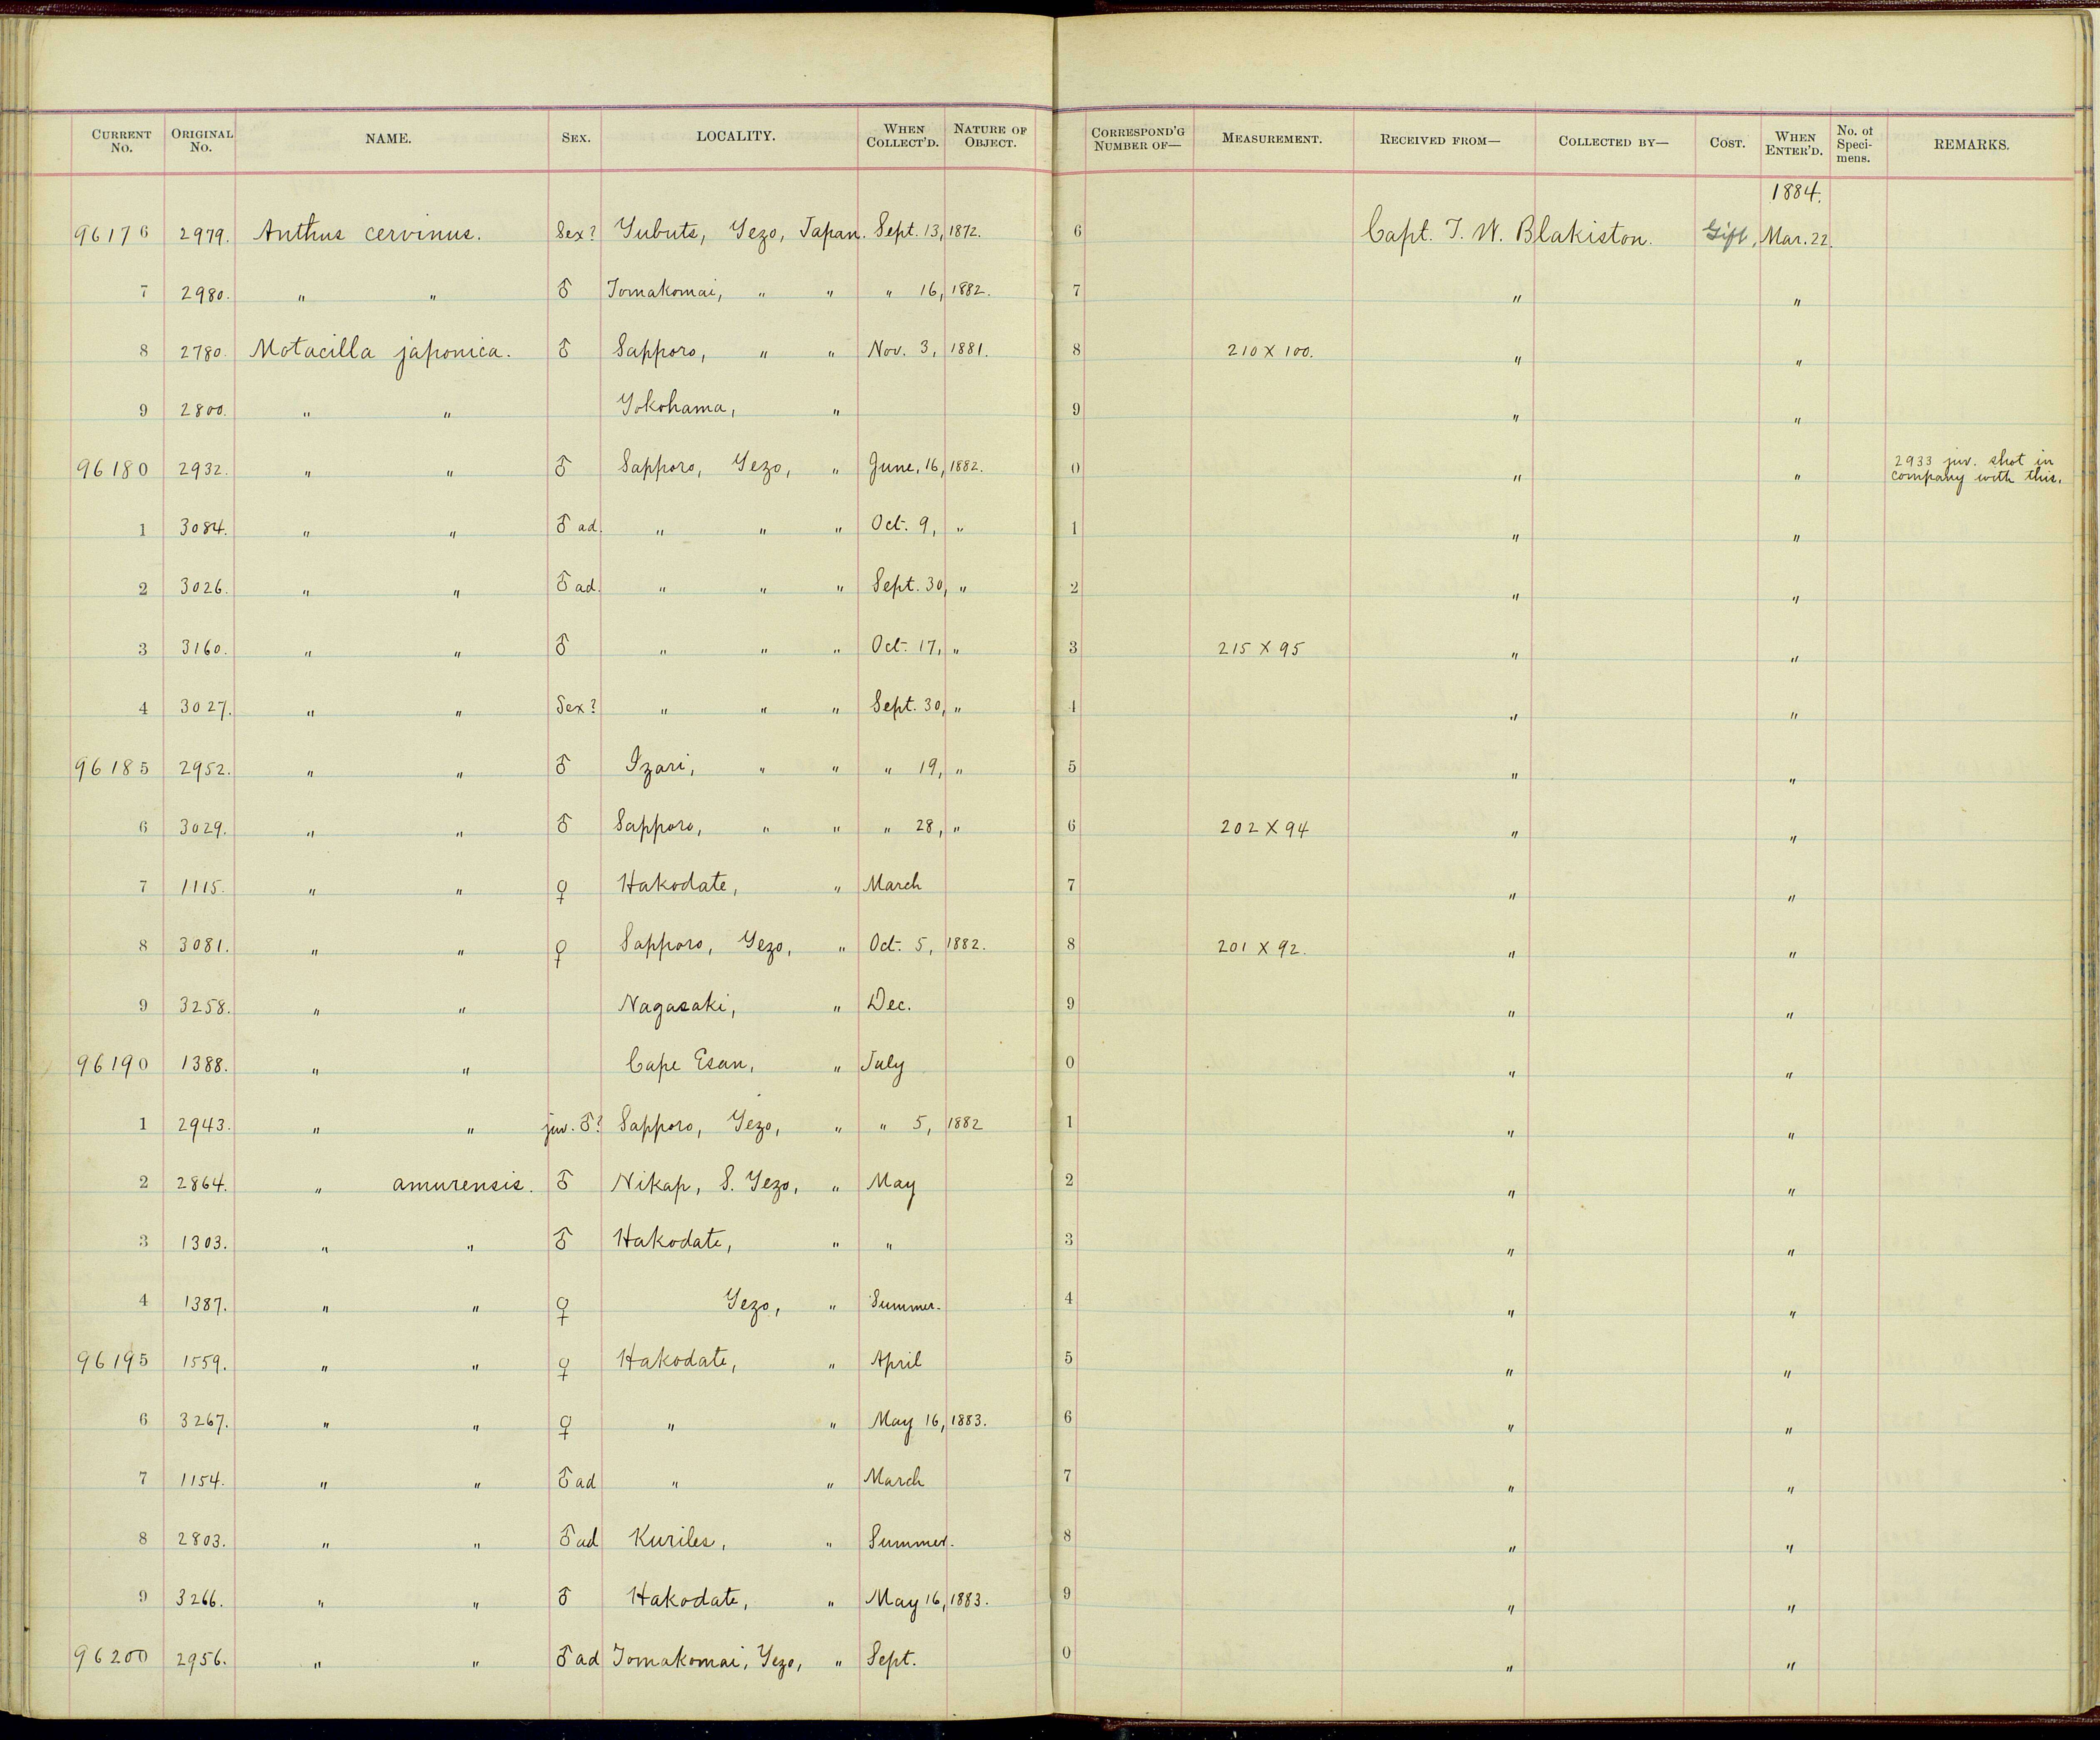 CURRENT No. ORIGINAL No. NAME. SEX. LOCALITY. WHEN COLLECT'D. NATURE OF OBJECT. CORRESPOND'G NUMBER OF— MEASUREMENT. RECEIVED FROM— COLLECTED BY— COST. WHEN ENTER'D. No. of Speci-mens. REMARKS.
1884.
96176 2979. Anthus cervinus. Sex? Yubuts, Yezo, Japan. Sept. 13, 1872. 6 Capt. T. W. Blakiston. Gift, Mar. 22.
7 2980. " " ♂ Tomakomai, " " " 16, 1882. 7 " "
8 2780. Motacilla japonica. ♂ Sapporo, " " Nov. 3, 1881. 8 210 X 100. " "
9 2800. " " Yokohama, " 9 " "
96180 2932. " " ♂ Sapporo, Yezo, " June, 16, 1882. 0 " " 2933 juv. shot in company with this.
1 3084. " " ♂ ad. " " " Oct. 9, " 1 " "
2 3026. " " ♂ ad. " " " Sept. 30, " 2 " "
3 3160. " " ♂ " " " Oct. 17, " 3 215 X 95 " "
4 3027. " " Sex? " " " Sept. 30, " 4 " "
96185 2952. " " ♂ Izari, " " " 19, " 5 " "
6 3029. " " ♂ Sapporo, " " " 28, " 6 202 X 94 " "
7 1115. " " ♀ Hakodate, " March 7 " "
8 3081. " " ♀ Sapporo, Yezo, " Oct. 5, 1882. 8 201 X 92. " "
9 3258. " " Nagasaki, " Dec. 9 " "
96190 1388. " " Cape Esan, " July 0 " "
1 2943. " " juv. ♂? Sapporo, Yezo, " " 5, 1882 1 " "
2 2864. " amurensis. ♂ Nikap, S. Yezo, " May 2 " "
3 1303. " " ♂ Hakodate, " " 3 " "
4 1387. " " ♀ Yezo, " Summer. 4 " "
96195 1559. " " ♀ Hakodate, " April 5 " "
6 3267. " " ♀ " " May 16, 1883. 6 " "
7 1154. " " ♂ ad " " March 7 " "
8 2803. " " ♂ ad Kuriles, " Summer. 8 " "
9 3266. " " ♂ Hakodate, " May 16, 1883. 9 " "
96200 2956. " " ♂ ad Tomakomai, Yezo, " Sept. 0 " "